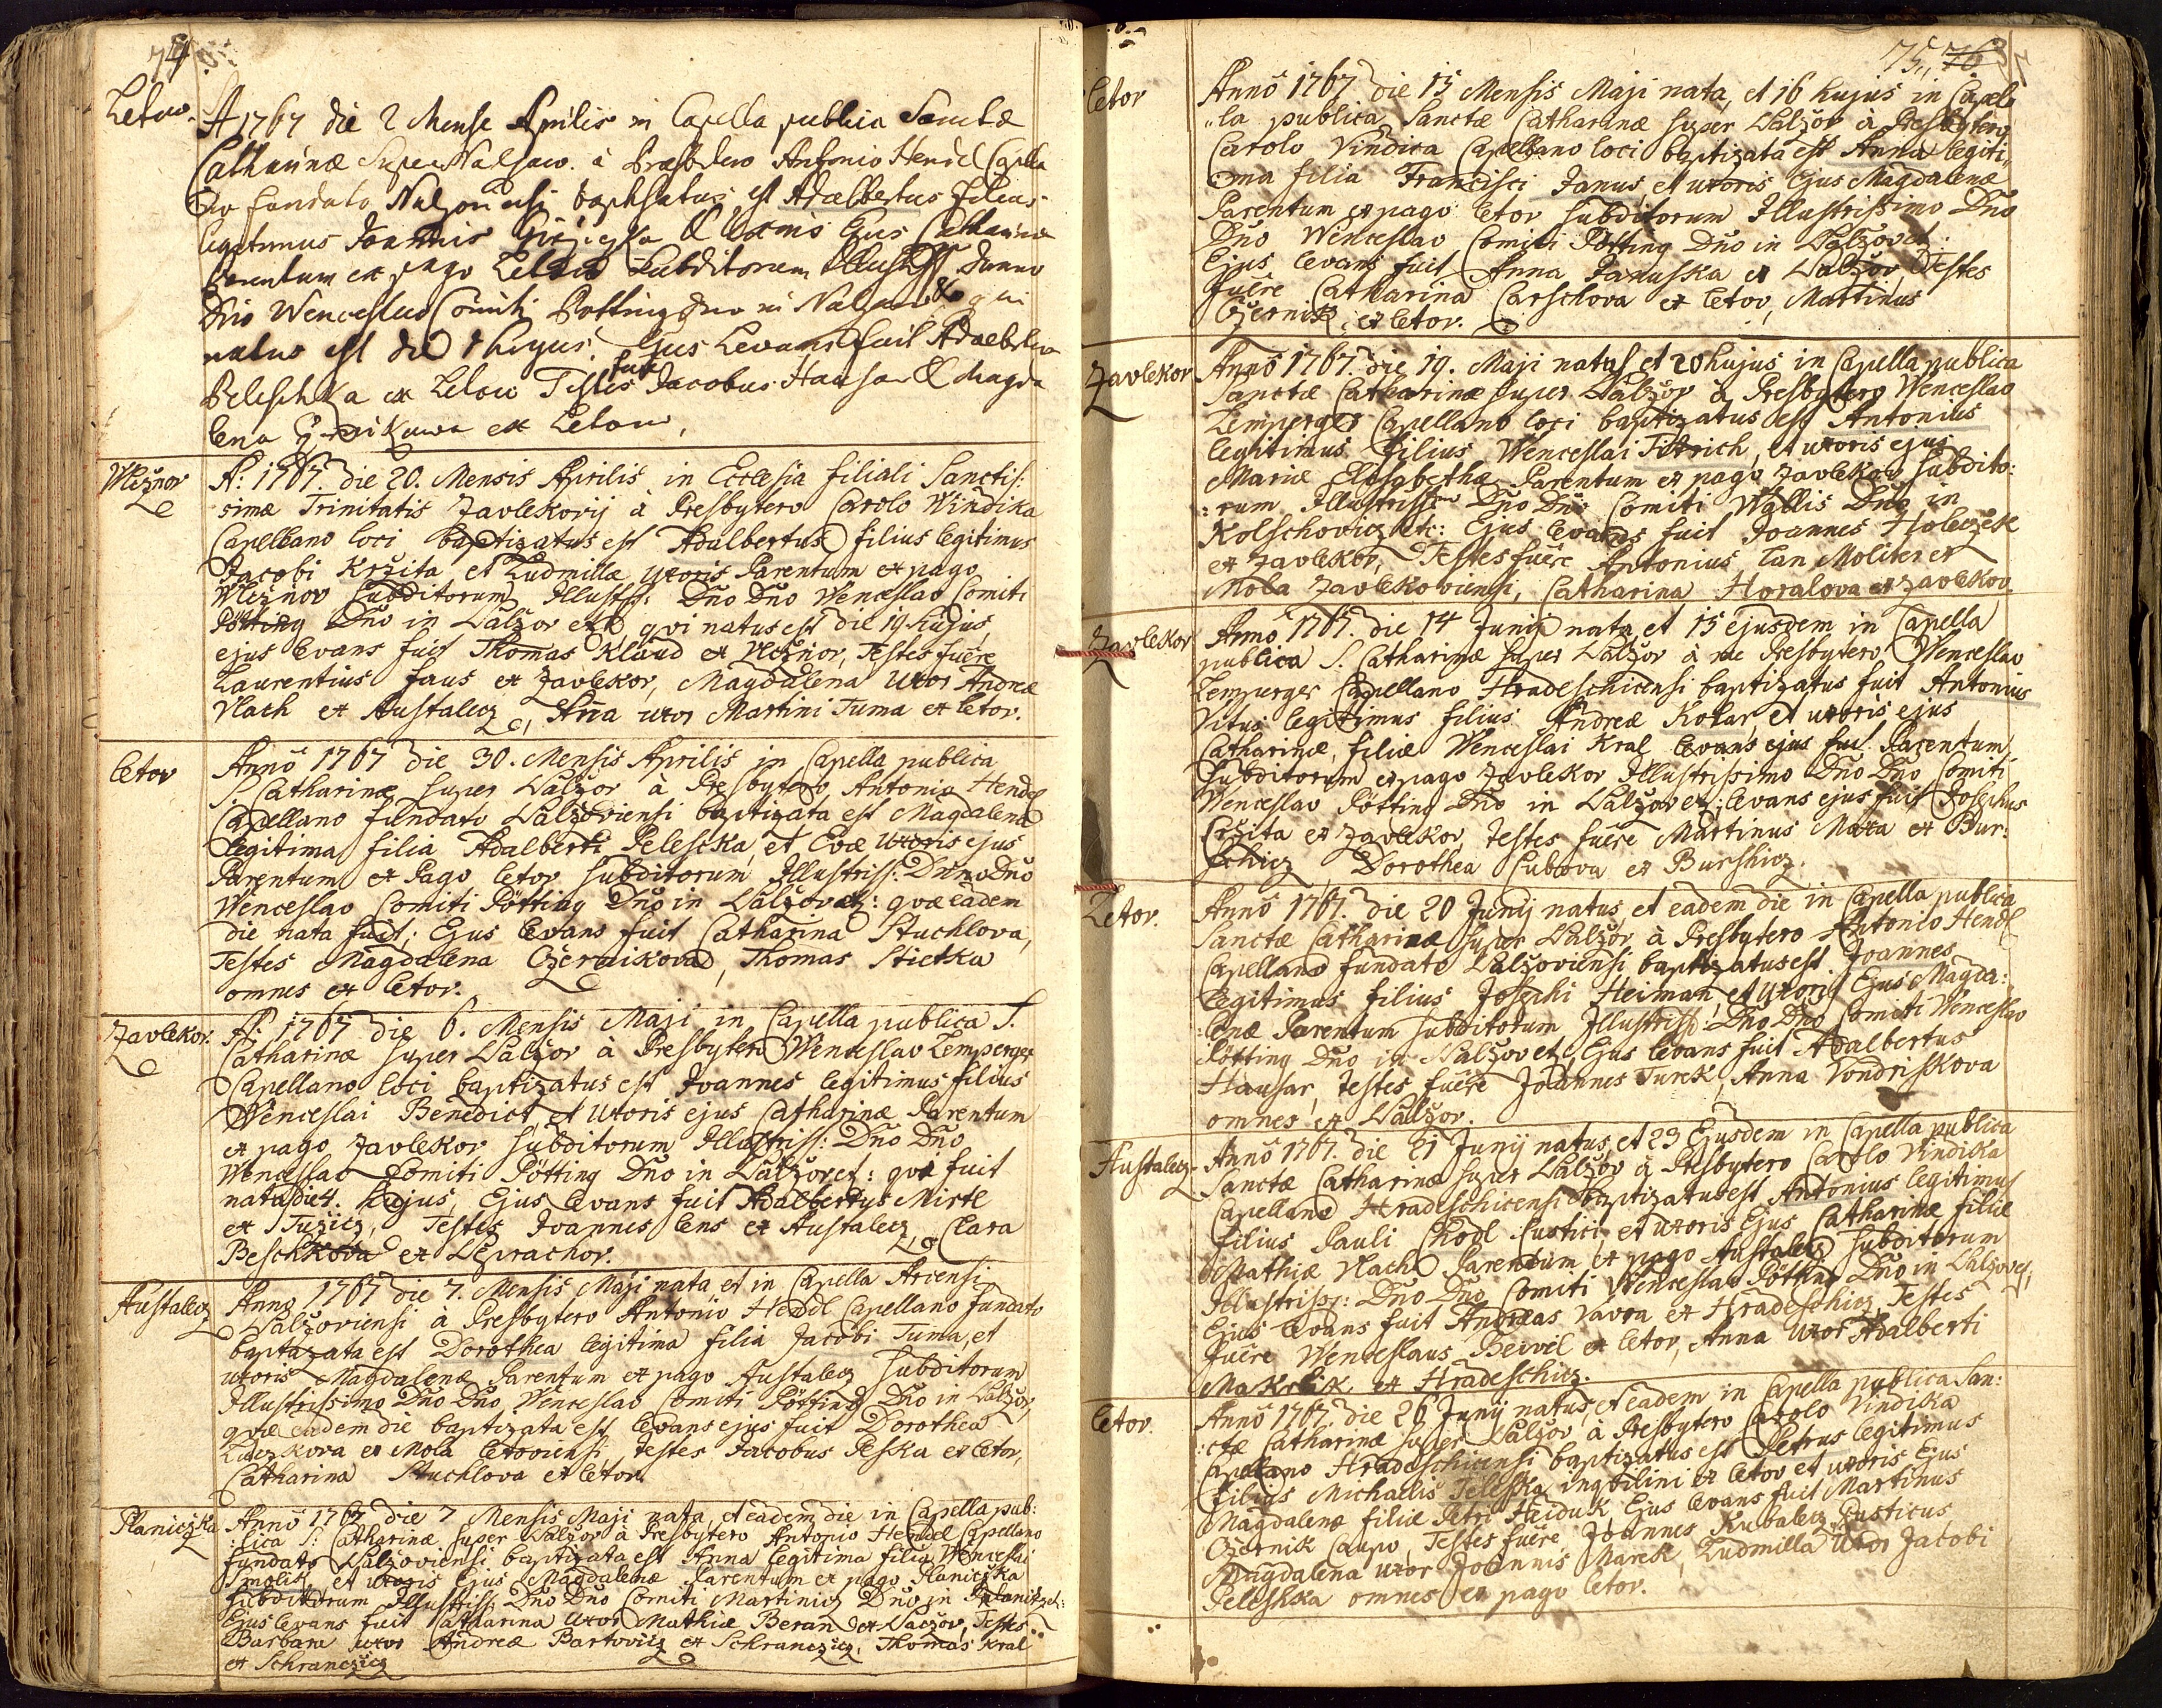 74
Letow.
A 1767 die 2 Mense Aprilis in Capella publica Sanctæ
Catharinæ Super Nalzow. à Præsbytero Antonio Hendl Capella
no fundato Nalzoviensi baptisatus est Adalbertus filius
legitimus Joannis & Uxoris Ejus Catharina
Parentum ex pago Letow Subditorum Illustriss Domno
Dno Wenceslao Comiti Potting Dno in Nalzow & qui
natus est die 1 hujus. Ejus Levans fuit Adalbertus
Peleschka ex Letow Testes fuere Jacobus Hausar & Magda
lena ex Letow,
Wleznov
A: 1767. die 20. Mensis Aprilis in Ecclesia filiali Sanctis:
simæ Trinitatis Zavlekovij à Presbytero Carolo Windika
Capellano loci baptizatus est Adalbertus filius legitimus
Jacobi Kržita et Ludmillæ Uxoris Parentum ex pago
Wleznov Subditorum Illustss: Dno Dno Wenceslao Comiti
Pötting Dno in Nalžov etc qvi natus est die 19 hujus,
ejus levans fuit Thomas Klaud ex Wleznov, Testes fuêre
Laurentius Faus ex Zavlekov, Magdalena Uxor Andreæ
Vlach ex Austalecz, Aña uxor Martini Tuma ex Letov.
Letov
Anno 1767 die 30. Mensis Aprilis in Capella publica
S. Catharinæ super Nalžov à Presbytero Antonio Hendl
Capellano fundato Nalžoviensi baptizata est Magdalena
legitima filia Adalberti Peleschka, et Evæ Uxoris ejus
Parentum ex Pago Letov Subditorum Illustriss: Dno Dno
Wenceslao Comiti Pötting Dno in Nalžov etz: qvæ eadem
die nata fuit; Ejus levans fuit Catharina Stuchlova,
Testes Magdalena Czernikova, Thomas Stietka
omnes ex Letov.
Zavlekov.
A: 1767 die 6. Mensis Maji in Capella publica S.
Catharinæ super Nalžov à Presbytero Wenceslao Lemperger
Capellano loci baptizatus est Joannes legitimus filius
Wenceslai Benedict, et Uxoris ejus Catharinæ Parentum
ex pago Zavlekov subditorum Illustriss: Dno Dno
Wenceslao Comiti Pötting Dno in Nalžov et: qvi fuit
natus die 4. hujus, Ejus levans fuit Adalbertus Mirtl
ex Tužicz, Testes Joannes Lens ex Austalecz, Clara
Beschkova ex Neprachov.
Austalecz
Anno 1767 die 7. Mensis Maji nata, et in Capella Arcensi
Nalžoviensi à Presbytero Antonio Hendl Capellano fundato
baptizata est Dorothea legitima filia Jacobi Tuma, et
uxoris Magdalenæ Parentum ex pago Austalecz subditorum
Illustrissimo Dno Dno Wenceslao Comiti Pötting Dno in Nalžov,
qvæ eadem die baptizata est, levans ejus fuit Dorothea
ex Mola Letoviensi, testes Jacobus Peska ex Letov,
Catharina Stuchlova ex Letov.
Planiczka
Anno 1767 die 7 Mensis Maji nata, et eadem die in Capella pub:
:lica S: Catharinæ super Nalžov à Presbytero Antonio Hendl Capellano
fundato Nalžoviensi baptizata est Anna legitima filia Wenceslai
Smolik, et uxoris Ejus Magdalenæ Parentum ex pago Planiczka
subditorum Illustriss: Dno Dno Comiti Martinicz Dno in Planitz et:
Ejus levans fuit Catharina Uxor Mathiæ Beran ex Nalžov, Testes
Barbara uxor Andreæ Bartovicz ex Schranczicz, Thomas Kral
ex Schranczicz
75,, 76
Letov
Anno 1767 die 15 Mensis Maji nata, et 16 hujus in Capel,,
,,la publica Sanctæ Catharinæ super Nalžov à Presbytero
Carolo Vindica Capellano loci baptizata est Anna legiti,,
ma filia Francisci Janus, et uxoris Ejus Magdalenæ
Parentum ex pago Letov subditorum Illustrissimo Dno
Dno Wenceslao Comiti Pötting Dno in Nalžov et:
Ejus levans fuit Anna Januska ex Nalžov, Testes
fuêre Catharina Carschova ex Letov, Martinus
Czernik ex Letov.
Zavlekov
Anno 1767. die 19. Maji natus et 20 hujus in Capella publica
Sanctæ Catharinæ super Nalžov à Presbytero Wenceslao
Lemperger Capellano loci baptizatus est Antonius
legitimus filius Wenceslai Titrich, et uxoris ejus
Mariæ Elisabethæ Parentum ex pago Zavlekov subdito:
:rum Illustrissmo Dno Dno Comiti Wallis Dno in
Kolschovicz etc: Ejus levans fuit Joannes Holeczek
ex Zavlekov, Testes fuêre Antonius Lan Moliter ex
Mola Zavlekoviensi, Catharina Horalova ex Zavlekov.
Zavlekov
Anno 1767. die 14 Junij nata, et 15 ejusdem in Capella
publica S. Catharinæ super Nalžov à me Presbytero Wenceslao
Lemperger Capellano Hradeschicensi baptizatus fuit Antonius
Vitus legitimus filius Andreæ Kolar, et uxoris ejus
Catharinæ, filiæ Wenceslai Kral levans ejus fuit Parentum
Subditorum ex pago Zavlekov Illustrissimo Dno Dno Comiti
Wenceslao Pötting Dno in Nalžov et: levans ejus fuit Josephus
Cržita ex Zavlekov, testes fuêre Martinus Maxa ex Bur:
schicz, Dorothea Cubova ex Burshicz.
Letov.
Anno 1767. die 20 Junij natus et eadem die in Capella publica
Sanctæ Catharinæ super Nalžov à Presbytero Antonio Hendl
Capellano fundato Nalžoviensi baptizatus est Joannes
legitimus filius Josephi Heiman, et Uxoris Ejus Magda:
:lenæ Parentum subditorum Illustriss: Dno Dno Comiti Wenceslao
Pötting Dno in Nalžov etc, Ejus levans fuit Adalbertus
Hausar, testes fuêre Joannes Turek, Anna Vondrškova
omnes ex Nalžov.
Austalecz
Anno 1767. die 21 Junij natus, et 23 Ejusdem in Capella publica
Sanctæ Catharinæ super Nalžov à Presbytero Carolo Vindika
Capellano Hradeschicensi baptizatus est Antonius legitimus
filius Pauli Chodl Rustici, et uxoris Ejus Catharinæ filiæ
Mathiæ Vlach Parentum ex pago Austalecz subditorum
Illustriss: Dno Dno Comiti Wenceslao Pötting Dno in Nalžov et,
Ejus levans fuit Andreas Vavra ex Hradeschicz, Testes
fuêre Wenceslaus Beivel ex Letov, Anna Uxor Adalberti
Makrlik ex Hradeschicz.
Letov.
Anno 1767. die 26 Junij natus, et eadem in Capella publica San:
:ctæ Catharinæ super Nalžov à Presbytero Carolo Vindika
Capelano Hradeschicensi baptizatus est Petrus legitimus
filius Michaelis Peleska inqvilini ex Letov et uxoris Ejus
Magdalenæ filiæ Petri Heiduk, Ejus levans fuit Martinus
Czernik Caupo, Testes fuêre Joannes Kubalecz Rusticus,
Magdalena uxor Joannis Marek, Ludmilla Uxor Jacobi
Peleshka omnes ex pago Letov.